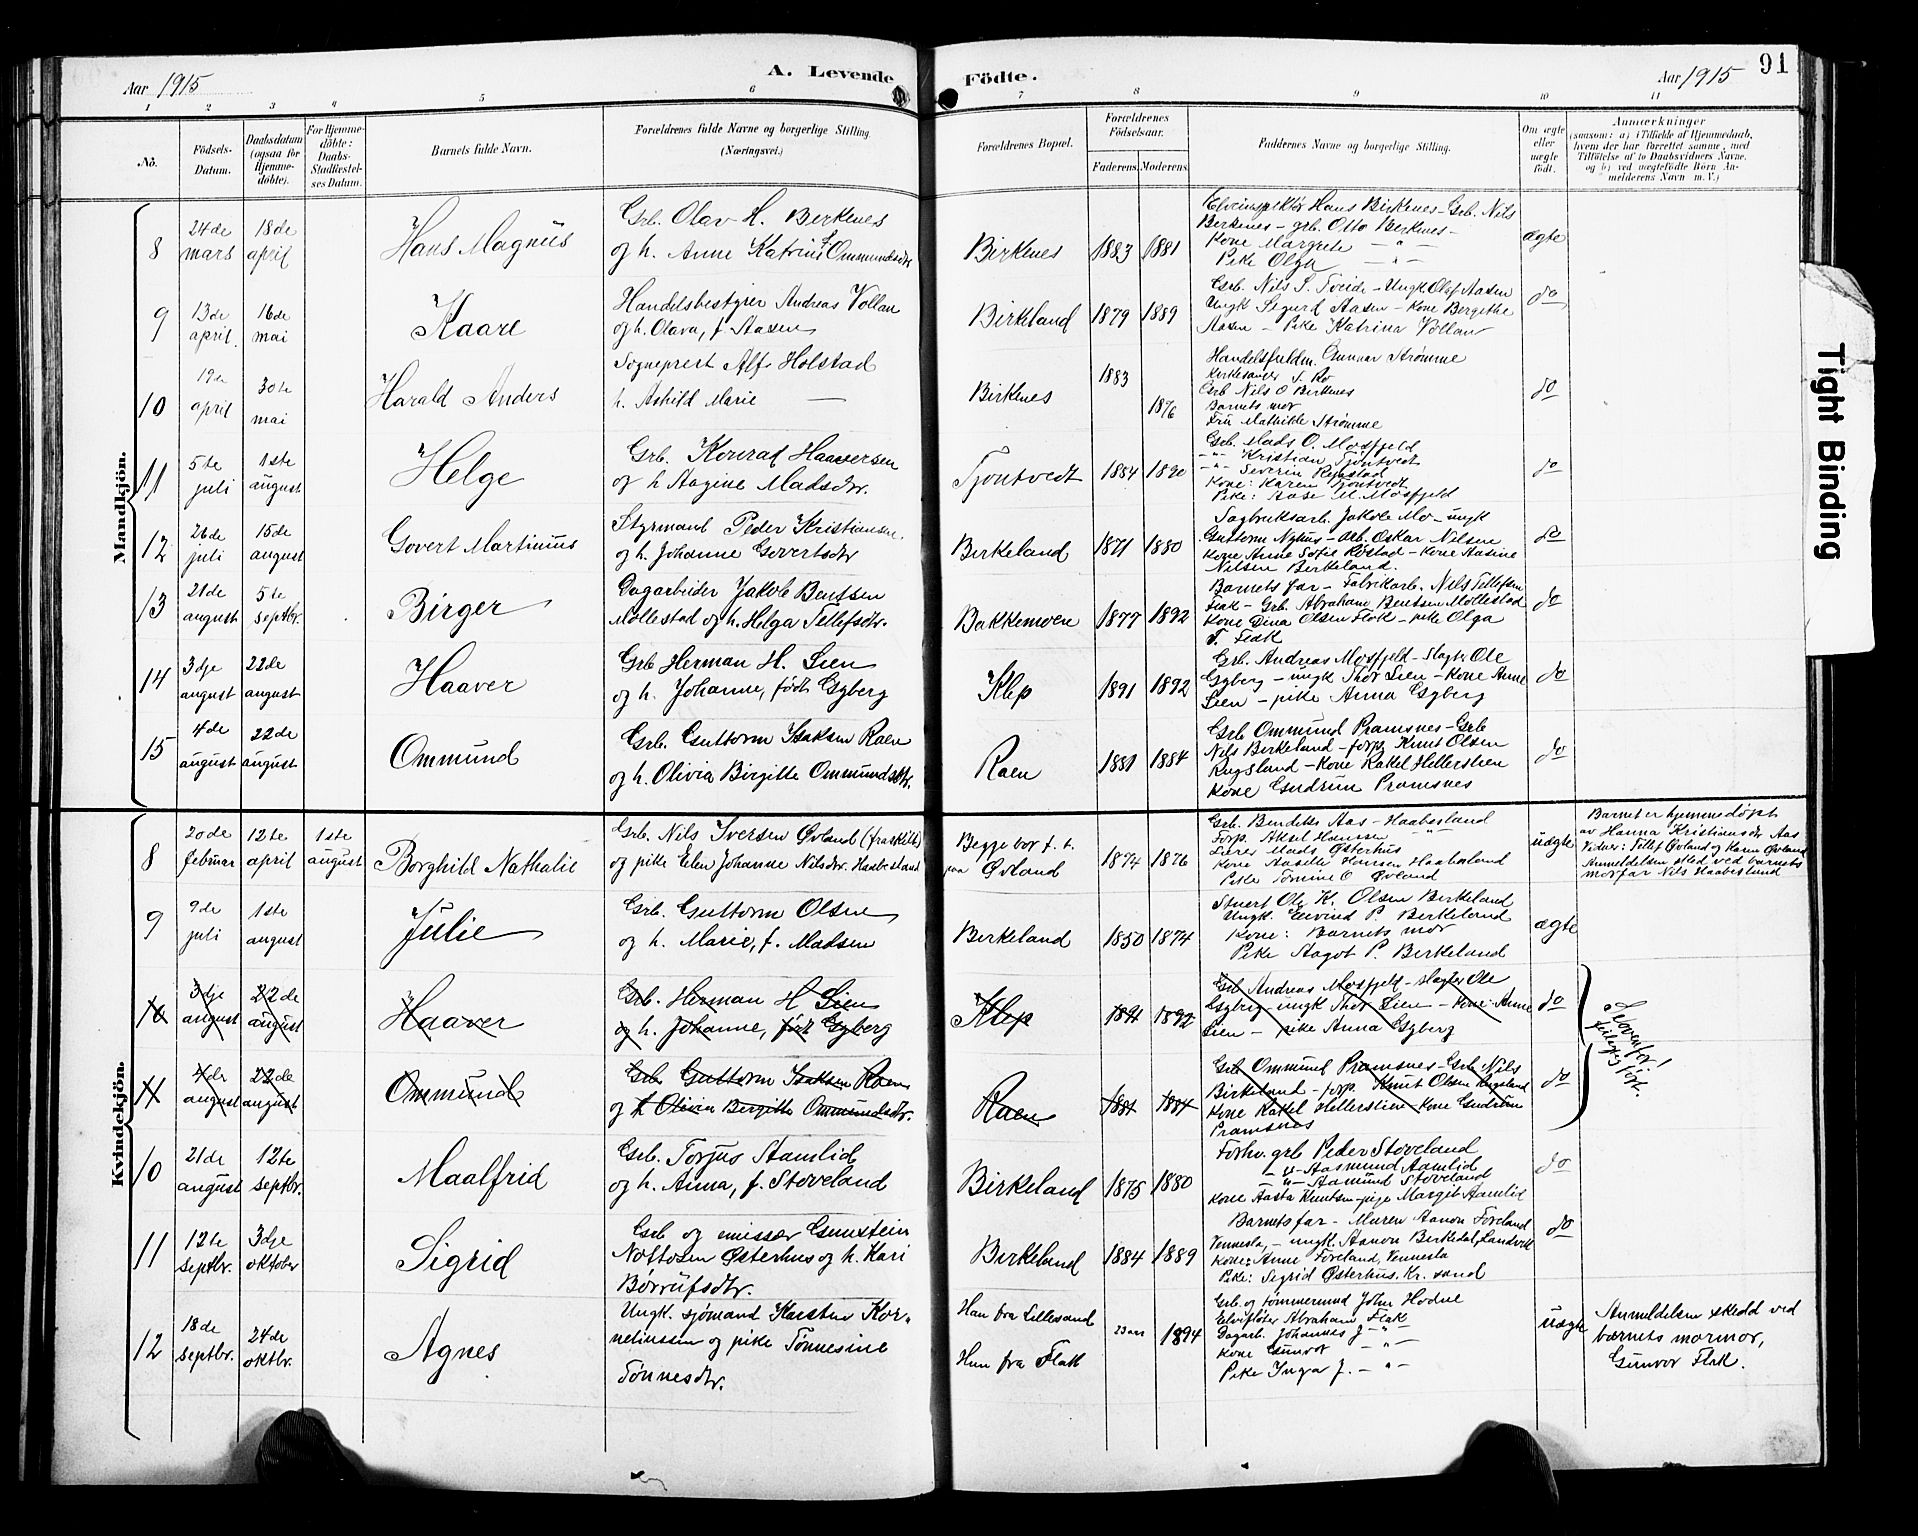 Aar 1915
A. Levende Födte.
Aar 1915
91
1 2 3 4 5 6 7 8 9 10 11
No.
Födsels-
Datum.
Daabsdatum
(ogsaa for
Hjemme-
döbte).
For Hjemme-
döbte:
Daabs-
Stadfæstel-
ses Datum.
Barnets fulde Navn.
Forældrenes fulde Navne og borgerlige Stilling.
(Næringsvei.)
Forældrenes Bopæl.
Forældrenes
Födselsaar.
Faderens. Moderens.
Faddernes Navne og borgerlige Stilling.
Om ægte
eller
uægte
födt.
Anmærkninger
(saasom: a) i Tilfælde af Hjemmedaab,
hvem der har forrettet samme, med
Tilföielse af to Daabsvidners Navne,
og b) ved uægtefödte Börn An-
melderens Navn m. V.)
Mandkjön.
8
24de
mars
18de
april
Hans Magnus
Grb. Olav H. Birkenes
og h. Anne Katrine Ommundsdtr
Birkenes
1883 1881
Hans Birkenes - Grb. Nils
Birkenes - grb. Otto Birkenes -
Kone Margrete - " -
Pike Olga - " -
ægte
9
13de
april.
16de
mai
Kaare
Handelsbestyrer Andreas Vollan
og h. Olava, f. Aasen
Birkeland
1879 1889
Grb. Nils S. Tveide - Ungk Olaf Aasen
Ungk Sigurd Aasen - Kone Bergithe
Aasen - Pike Katrina Vollan
do
10
19de
april
30te
mai
Harald Anders
Sogneprest Alf Holstad
h. Ashild Marie
Birkenes
1883
1876
Handelsfuldm. Gunnar Strømme
Kirkesanger S. Ro
Grb Nils O Birkenes
Barnets mor
Fru Mathilde Strømme
do
11
5te
juli
1ste
august
Helge
Grb. Konrad Haaversen
og h Aagine Madsdtr.
Tjöntvedt
1884 1890
Grb. Mads O. Mosfjeld
- " - Kristian Tjöntvedt
- " - Severin Rugstad
Kone: Karen Tjöntvedt
Pike: Aase M. Mosfjeld
do
12
26de
juli
15de
august
Govert Martinius
Styrmand Peder Kristiansen.
og h. Johanne Govertsdtr
Birkeland
1871 1880
Sagbruksarb. Jakob Mo - ungk
Guttorm Nyhus - arb. Oskar Nilsen
Kone Anne Sofie Röstad - Kone Aasine
Nilsen Birkeland.
do
13
21de
august
5te
septbr.
Birger
Dagarbeider Jakob Bentsen
Møllestad og h. Helga Tellefsdtr.
Bakkemoen
1877 1892
Barnets far - Fabrikarb. Nils Tellefsen
Flak - Grb. Abraham Bentsen Møllestad
Kone Dina Olsen Flak - pike Olga
T. Flak
do
14
3dje
august
22de
august
Haaver
Grb Herman H. Lien
og h. Johanne, født Egberg
Klep
1891 1892
Grb. Andreas Mosfjeld - Slagter Ole
Egberg - ungk Thor Lien - Kone Anne
Lien - pike Anna Egberg
do
15
4de
august
22de
august
Ommund
Grb. Guttorm Isaksen Raen
og h. Olivia Birgitte Ommundsdtr.
Raen
1881 1884
Grb Ommund Pramsnes - Grb
Nils Birkeland - forp. Knut Olsen
Rugsland - Kone Rakel Hellerstien
Kone Gudrun Pramsnes
do
Kvindekjön.
8
20de
februar
12te
april
1ste
august
Borghild Nathalie
Grb. Nils Iversen Øvland (fraskilt)
og pike Elen Johanne Nilsdtr. Haabesland
Begge bor f. t.
paa Øvland
1874 1876
Grb. Bendiks Aas - Haabesland
Forp. Aksel Hansen - " -
Lærer Mads Østerhus
Kone Aaselle Hansen Haabesland
Pike Tomine O Øvland
uægte
Barnet er hjemmedøpt
av Hanna Kristiansdtr Aas
Vidner: Tellef Øvland og Karen Øvland
Anmeldelsen sked ved barnets
morfar Nils Haabesland
9
9de
juli
1ste
august
Julie
Grb. Guttorm Olsen
og h. Marie, f. Madsen
Birkeland
1850 1874
Stuert Ole K. Olsen Birkeland
Ungk. Eivind P. Birkeland
Kone: Barnets mor
Pike Aagot P. Birkeland
ægte
10
3dje
august
22de
august
Haaver
Grb. Herman H Lien
og h. Johanne, født Egberg
Klep
1891 1892
Grb Andreas Mosfjeld - slagter Ole
Egberg - ungk Thor Lien - Kone Anne
Lien - pike Anna Egberg
do
11
4de
august
22de
august
Ommund
Grb Guttorm Isaksen Raen
og h Olivia Birgitte Ommundsdtr.
Raen
1881 1884
Grb Ommund Pramsnes - Grb. Nils
Birkeland - forp. Knut Olsen Rugsland
Kone Rakel Hellerstien - Kone Gudrun
Pramsnes
do
Se ovenfor!
feilagtig ført.
10
21de
august
12te
septbr.
Maalfrid
Grb. Torjus Aamlid
og h. Anna, f. Stoveland
Birkeland
1875 1880
Forhv. grb Peder Stoveland
- " - Aasmund Aamlid
- " - Aamund Stoveland
Kone Aasta Knutsen - pige Margit Aamlid
do
11
12te
septbr.
3dje
oktober
Sigrid
Grb og emissær Gunstein
Nottosen Østerhus og h. Kari
Børrufsdtr.
Birkeland
1884 1889
Barnets far - Murer Aanon Foreland
Vennesla, - ungk. Aanon Birkedal, Landvik
Kone: Anne Foreland, Vennesla
Pike: Sigrid Østerhus. Kr. sand
do
12
18de
septbr.
24de
oktbr.
Agnes
Ungk. sjømand Karsten Kor-
neliussen og pike Tønnesine
Tønnesdtr.
Han fra Lillesand
Hun fra Flak
23 aar 1894
Grb. og tømmermand John Hodne
Elvefløter Abraham Flak
Dagarb. Johannes J - " -
Kone Gunvor - " -
Pike Inga J. - " -
uægte
Anmeldelsen skedd ved
barnets mormor,
Gunvor Flak.
Tight Binding